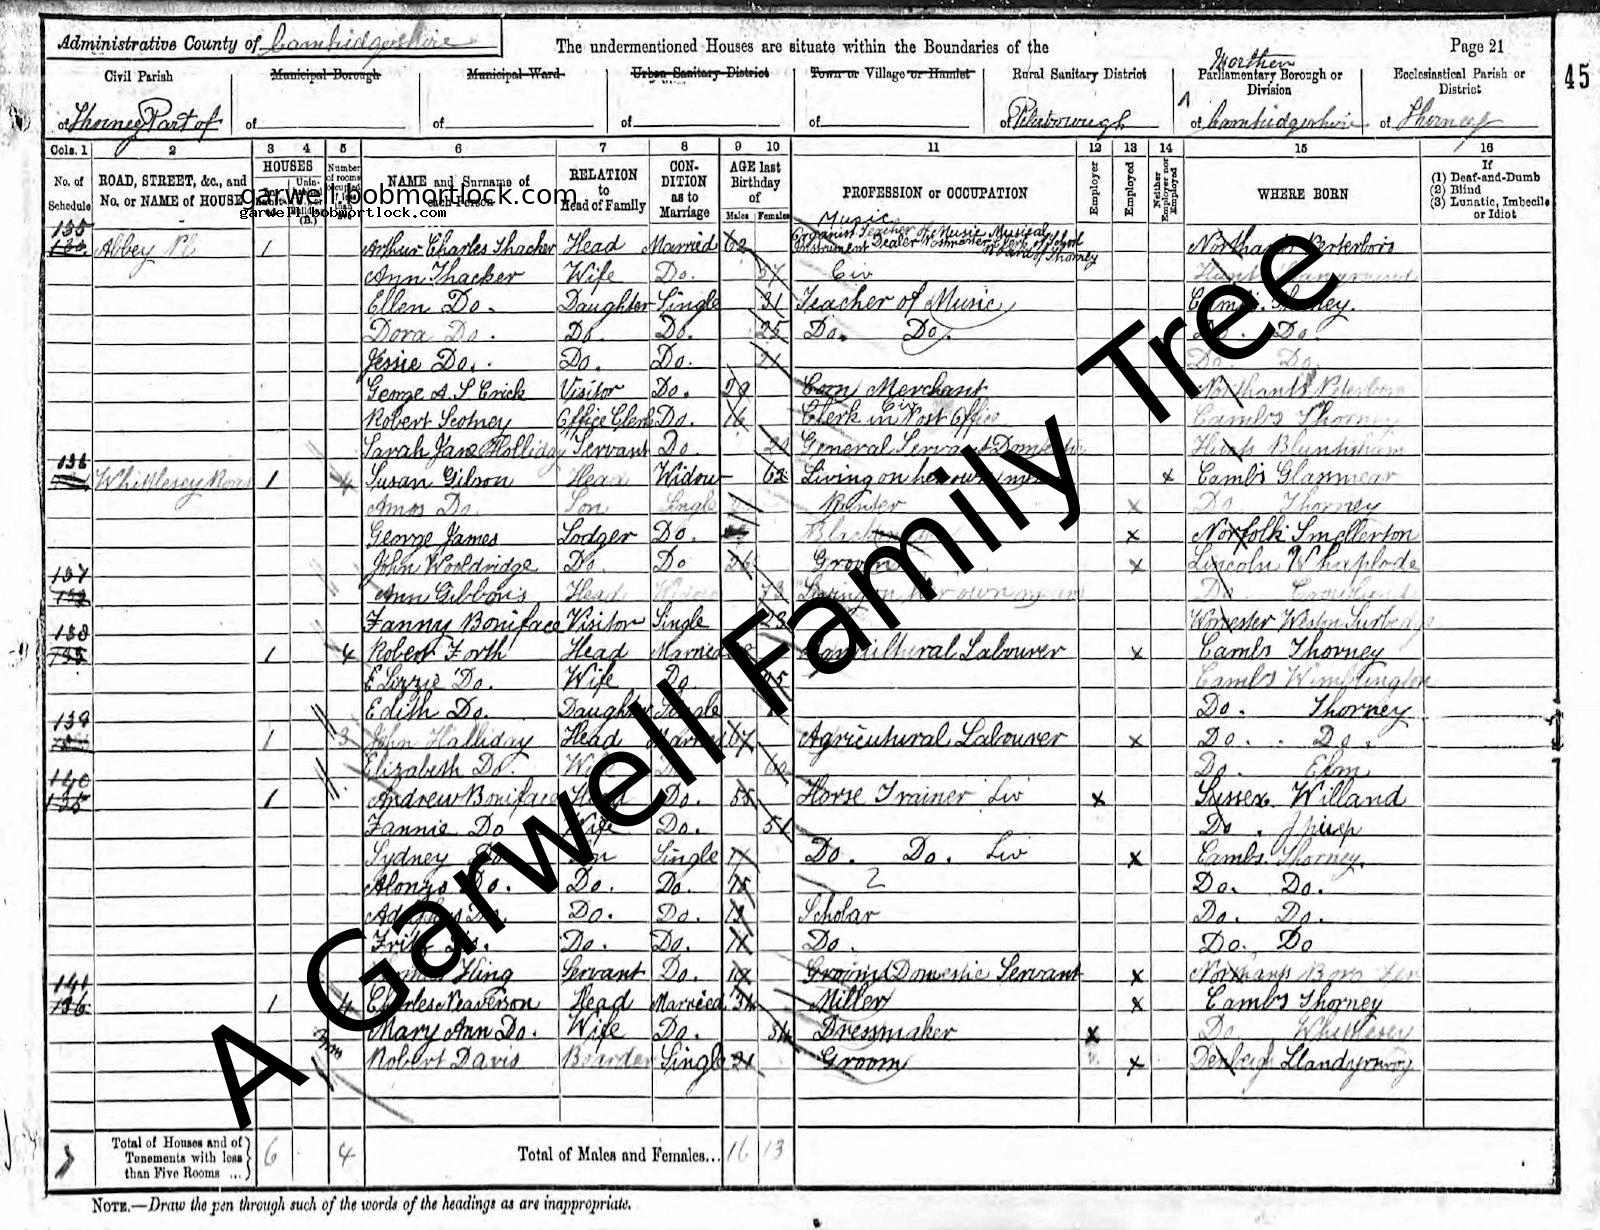 Administrative County of Cambridgeshire
The undermentioned Houses are situate within the Boundaries of the
Page 21
45
Civil Parish
Municipal Borough
Municipal Ward
Urban Sanitary District
Town or Village or Hamlet
Rural Sanitary District
Northern
Parliamentary Borough or Division
Ecclesiastical Parish or District
of Thorney Part of
of
of
of
of
of Peterborough
of Cambridgeshire
of Thorney
Cols. 1 2 3 4 5 6 7 8 9 10 11 12 13 14 15 16
No. of Schedule
ROAD, STREET, &c., and No. or NAME of HOUSE
HOUSES
NAME and Surname of each Person
RELATION to Head of Family
CONDITION as to Marriage
AGE last Birthday of
Males Females
PROFESSION or OCCUPATION
Employer
Employed
Neither Employer nor Employed
WHERE BORN
If
(1) Deaf-and-Dumb
(2) Blind
(3) Lunatic, Imbecile or Idiot
garwell.bobmortlock.com
garwell.bobmortlock.com
Music
135 Abbey Pl 1 Arthur Charles Thacker Head Married 62 Organist Teacher of Music Musical Instrument Dealer Postmaster Clerk of School Board of Thorney
Ann Thacker Wife Do. 57 Civ
Ellen Do. Daughter Single 31 Teacher of Music Cambs. Thorney.
Dora Do. Do. Do. 25 Do. Do. Do. Do.
Jessie Do. Do. Do. 21 Do. Do.
George A. S. Crick Visitor Do. 29 Corn Merchant Northants Peterboro
Robert Scotney Office Clerk Do. 16 Clerk in Post Office Cambs Thorney
Sarah Jane Holliday Servant Do. 20 General Servant Domestic Hunts Bluntisham
136 Whittlesey Road 1 4 Susan Gibson Head Widow 62 Living on her own means x Cambs
Amos Do. Son Single x Do. Thorney
George James Lodger Do. x Norfolk
John Wooldridge Do. Do 26 Groom x Lincoln Whaplode
137 Ann Gibbons Head Widow 73 Living on her own means Do Crowland
Fanny Boniface Visitor Single 23 Worcester
138 1 4 Robert Forth Head Married Agricultural Labourer x Cambs Thorney
E Lizzie Do. Wife Do. Cambs Wimblington
Edith Do. Daughter Single Do. Thorney
139 1 3 John Halliday Head Married 67 Agricultural Labourer x Do. Do.
Elizabeth Do. Wife 60 Do. Elm
140 1 Andrew Boniface Head Do. 55 Horse Trainer Liv x Sussex
Fannie Do Wife Do. 51 Do.
Sydney Do Son Single Do. Do. Liv x Cambs. Thorney.
Alonzo Do. Do. Do. 15 2 Do. Do.
Do. Do. Do. 13 Scholar Do. Do.
Fritz Do. Do. Do. 11 Do. Do. Do
King Servant Do. Groom Domestic Servant x Northants
141 1 4 Charles Neaverson Head Married 34 Miller x Cambs Thorney
Mary Ann Do. Wife Do. 34 Dressmaker x Do Whittlesey
Robert Davis Boarder Single 21 Groom x Denbigh
Total of Houses and of Tenements with less than Five Rooms ... 6 4 Total of Males and Females... 16 13
NOTE.—Draw the pen through such of the words of the headings as are inappropriate.
A Garwell Family Tree